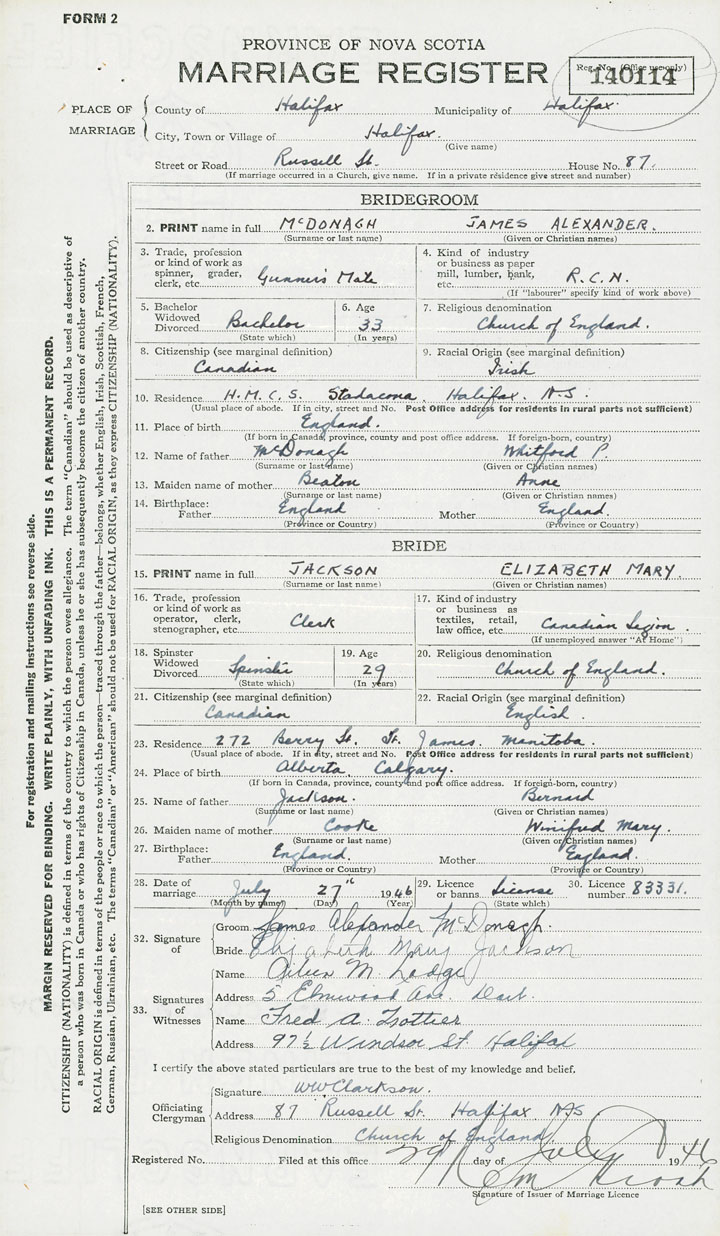 FORM 2
PROVINCE OF NOVA SCOTIA
MARRIAGE REGISTER
Reg. No. (Office use only)
140114
PLACE OF MARRIAGE
County of Halifax Municipality of Halifax.
City, Town or Village of Halifax.
(Give name)
Street or Road Russell St. House No. 87.
(If marriage occurred in a Church, give name. If in a private residence give street and number)
BRIDEGROOM
2. PRINT name in full McDONAGH JAMES ALEXANDER.
(Surname or last name) (Given or Christian names)
3. Trade, profession or kind of work as spinner, grader, clerk, etc. Gunner's Mate
4. Kind of industry or business as paper mill, lumber, bank, etc. R.C.N.
(If "labourer" specify kind of work above)
5. Bachelor Widowed Divorced Bachelor
(State which)
6. Age 33
(In years)
7. Religious denomination
Church of England.
8. Citizenship (see marginal definition)
Canadian
9. Racial Origin (see marginal definition)
Irish
10. Residence H.M.C.S. Stadacona, Halifax. N.S.
(Usual place of abode. If in city, street and No. Post Office address for residents in rural parts not sufficient)
11. Place of birth England.
(If born in Canada, province, county and post office address. If foreign-born, country)
12. Name of father McDonagh Whitford P.
(Surname or last name) (Given or Christian names)
13. Maiden name of mother Beaton Anne
(Surname or last name) (Given or Christian names)
14. Birthplace: Father England Mother England.
(Province or Country) (Province or Country)
BRIDE
15. PRINT name in full JACKSON ELIZABETH MARY.
(Surname or last name) (Given or Christian names)
16. Trade, profession or kind of work as operator, clerk, stenographer, etc. Clerk
17. Kind of industry or business as textiles, retail, law office, etc. Canadian Legion.
(If unemployed answer "At Home")
18. Spinster Widowed Divorced Spinster
(State which)
19. Age 29
(In years)
20. Religious denomination
Church of England.
21. Citizenship (see marginal definition)
Canadian
22. Racial Origin (see marginal definition)
English.
23. Residence 272 Berry St. St. James. Manitoba.
(Usual place of abode. If in city, street and No. Post Office address for residents in rural parts not sufficient)
24. Place of birth Alberta, Calgary.
(If born in Canada, province, county and post office address. If foreign-born, country)
25. Name of father Jackson. Bernard
(Surname or last name) (Given or Christian names)
26. Maiden name of mother Cooke Winifred Mary.
(Surname or last name) (Given or Christian names)
27. Birthplace: Father England. Mother England.
(Province or Country) (Province or Country)
28. Date of marriage July 27th 1946
(Month by name) (Day) (Year)
29. Licence or banns License
(State which)
30. Licence number 83331.
32. Signature of
Groom James Alexander McDonagh.
Bride Elizabeth Mary Jackson
33. Signatures of Witnesses
Name M. Lodge
Address 5 Elmwood Ave. Dart.
Name Fred A. Trottier
Address 97½ Windsor St. Halifax
I certify the above stated particulars are true to the best of my knowledge and belief.
Officiating Clergyman
Signature WW Clarkson.
Address 87 Russell St. Halifax NS
Religious Denomination Church of England
Registered No. Filed at this office 29 day of July 1946
Signature of Issuer of Marriage Licence
[SEE OTHER SIDE]
For registration and mailing instructions see reverse side.
MARGIN RESERVED FOR BINDING. WRITE PLAINLY, WITH UNFADING INK. THIS IS A PERMANENT RECORD.
CITIZENSHIP (NATIONALITY) is defined in terms of the country to which the person owes allegiance. The term "Canadian" should be used as descriptive of
a person who was born in Canada or who has rights of Citizenship in Canada, unless he or she has subsequently become the citizen of another country.
RACIAL ORIGIN is defined in terms of the people or race to which the person—traced through the father—belongs, whether English, Irish, Scottish, French,
German, Russian, Ukrainian, etc. The terms "Canadian" or "American" should not be used for RACIAL ORIGIN, as they express CITIZENSHIP (NATIONALITY).